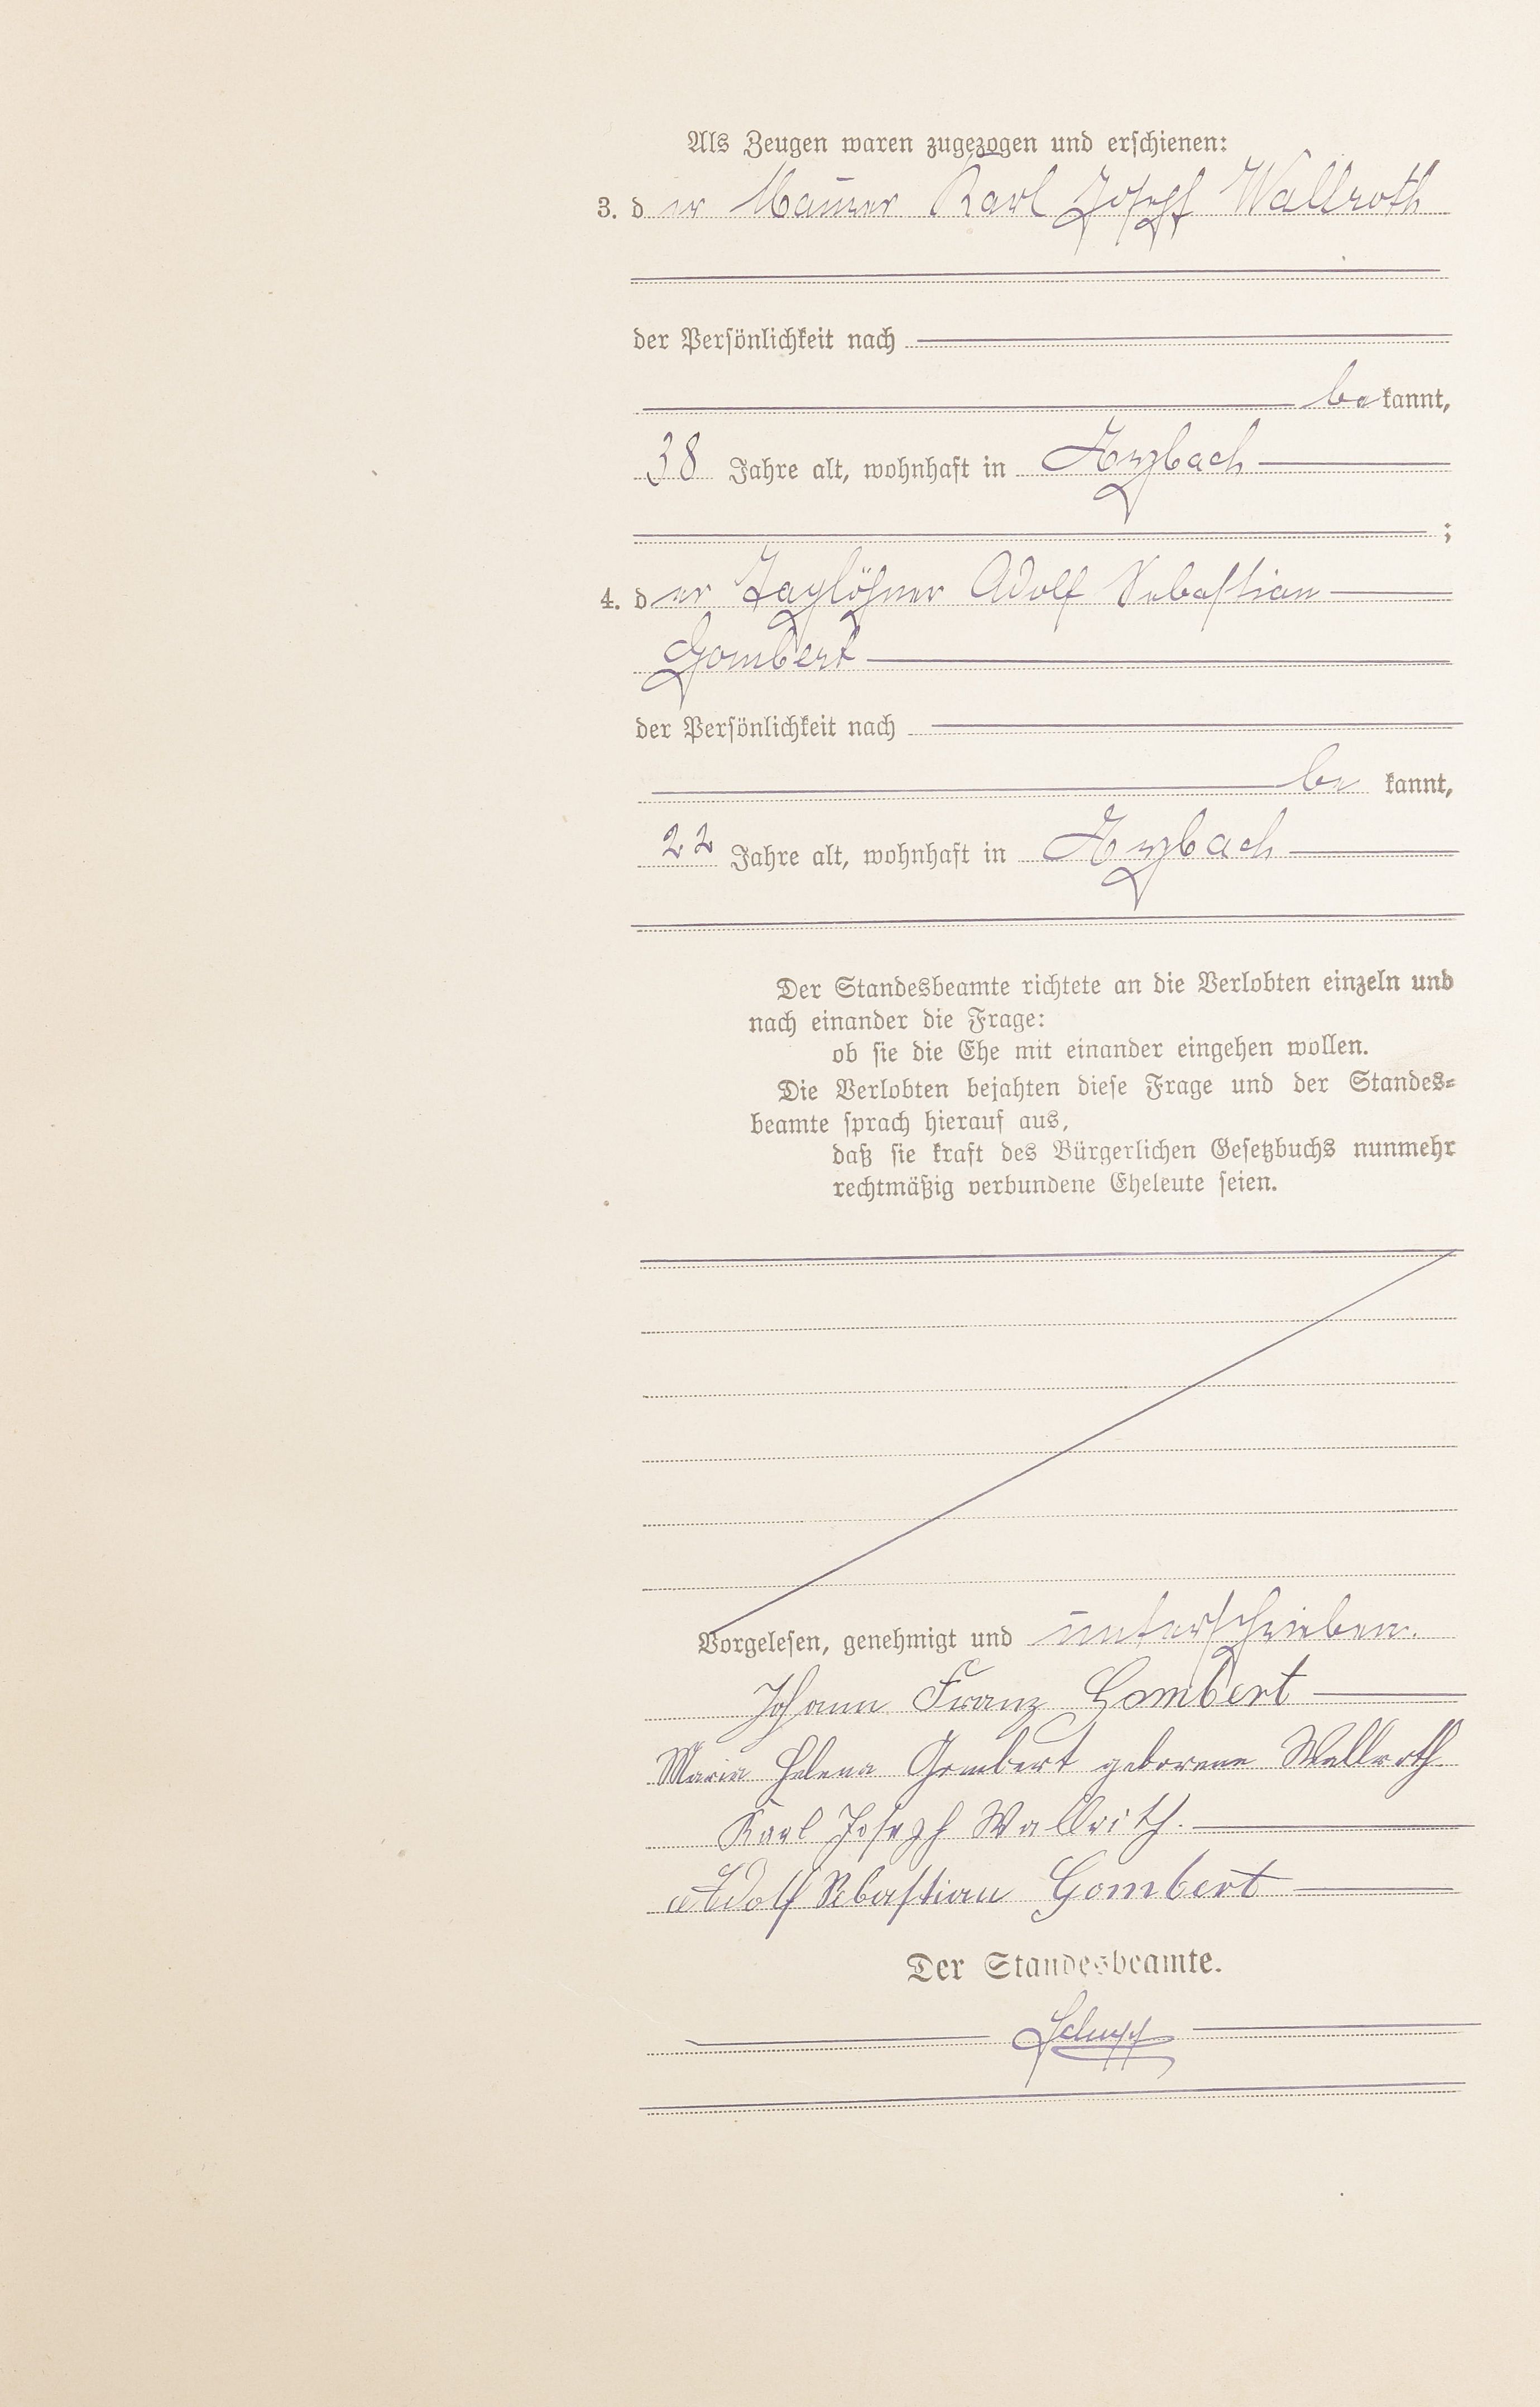 Als Zeugen waren zugezogen und erschienen:
3. der Maurer Karl Joseph Wallroth
der Persönlichkeit nach
bekannt,
38 Jahre alt, wohnhaft in Arzbach
;
4. der Taglöhner Adolf Sebastian
Gombert
der Persönlichkeit nach
bekannt,
22 Jahre alt, wohnhaft in Arzbach
Der Standesbeamte richtete an die Verlobten einzeln und
nach einander die Frage:
ob sie die Ehe mit einander eingehen wollen.
Die Verlobten bejahten diese Frage und der Standes-
beamte sprach hierauf aus,
daß sie kraft des Bürgerlichen Gesetzbuchs nunmehr
rechtmäßig verbundene Eheleute seien.
Vorgelesen, genehmigt und unterschrieben.
Johann Franz Gombert
Maria Helena Gombert geborene Wallroth
Karl Joseph Wallroth.
Adolf Sebastian Gombert
Der Standesbeamte.
Schupp